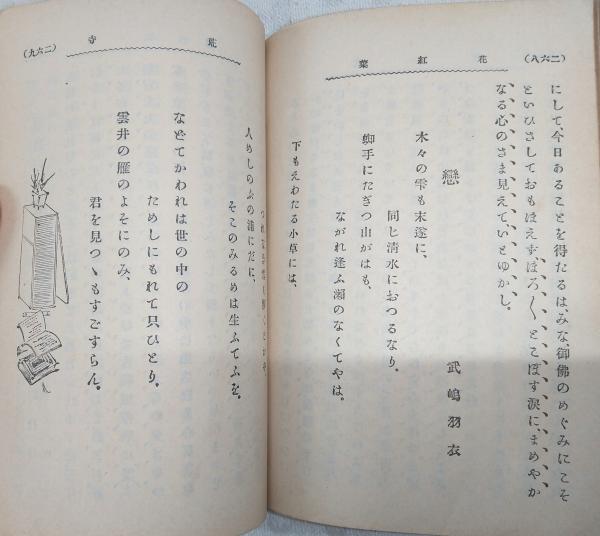 (二六八)
花紅葉
にして、今日あることを得たるは、みな、御佛のめぐみにこそ
といひさしておもほえず、ぼろ〳〵とこぼす涙に、まめやか
なる心のさま見えていとゆかし。
戀
武嶋羽衣
木々の雫も末遂に、
同じ清水におつるなり。
蜘手にたぎつ山がはも、
ながれ逢ふ瀬のなくてやは。
下もえわたる小草には、
荒寺
(二六九)
人めしのぶの浦にだに、
そこのみるめは生ふてふを。
などてかわれは世の中の
ためしにもれて只ひとり、
雲井の雁のよそにのみ、
君を見つゝもすごすらん。